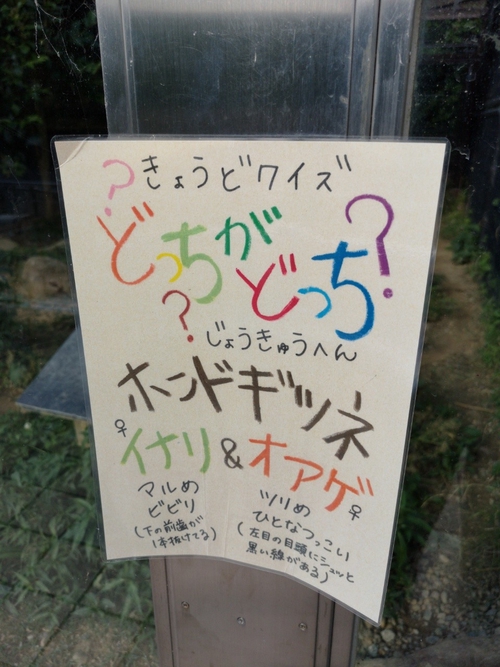 ?きょうどクイズ
どっちがどっち?
?じょうきゅうへん
ホンドギツネ
♀イナリ&オアゲ♀
マルめ
ビビリ
(下の前歯が
1本抜けてる)
ツリめ
ひとなつっこい
(左目の目頭にシュッと
黒い線がある)